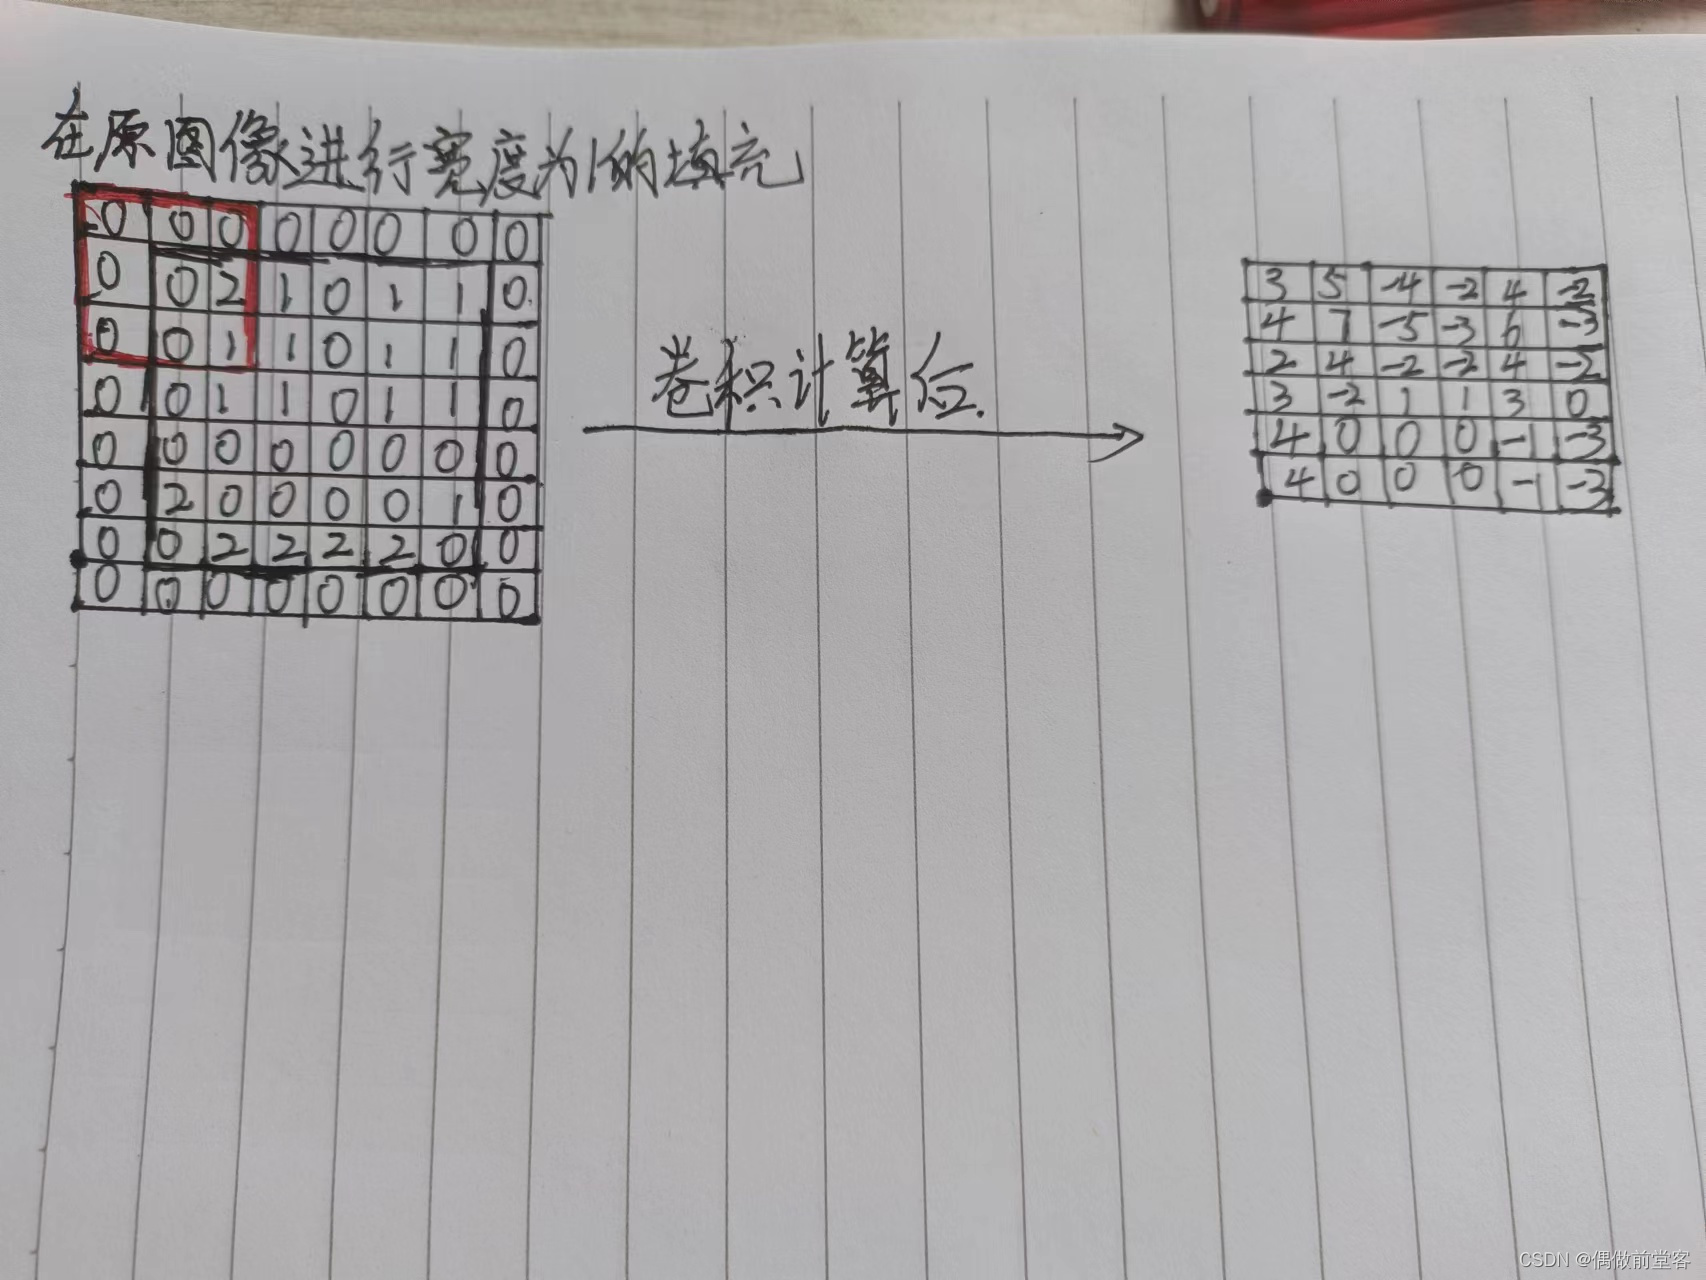 在原图像进行宽度为1的填充
0 0 0 0 0 0 0 0
0 0 2 1 0 1 1 0
0 0 1 1 0 1 1 0
0 0 1 1 0 1 1 0
0 0 0 0 0 0 0 0
0 2 0 0 0 0 1 0
0 0 2 2 2 2 0 0
0 0 0 0 0 0 0 0
卷积计算后.
3 5 -4 -2 4 -2
4 7 -5 -3 6 -3
2 4 -2 -2 4 -2
3 -2 1 1 3 0
4 0 0 0 -1 -3
4 0 0 0 -1 -3
CSDN @偶做前堂客